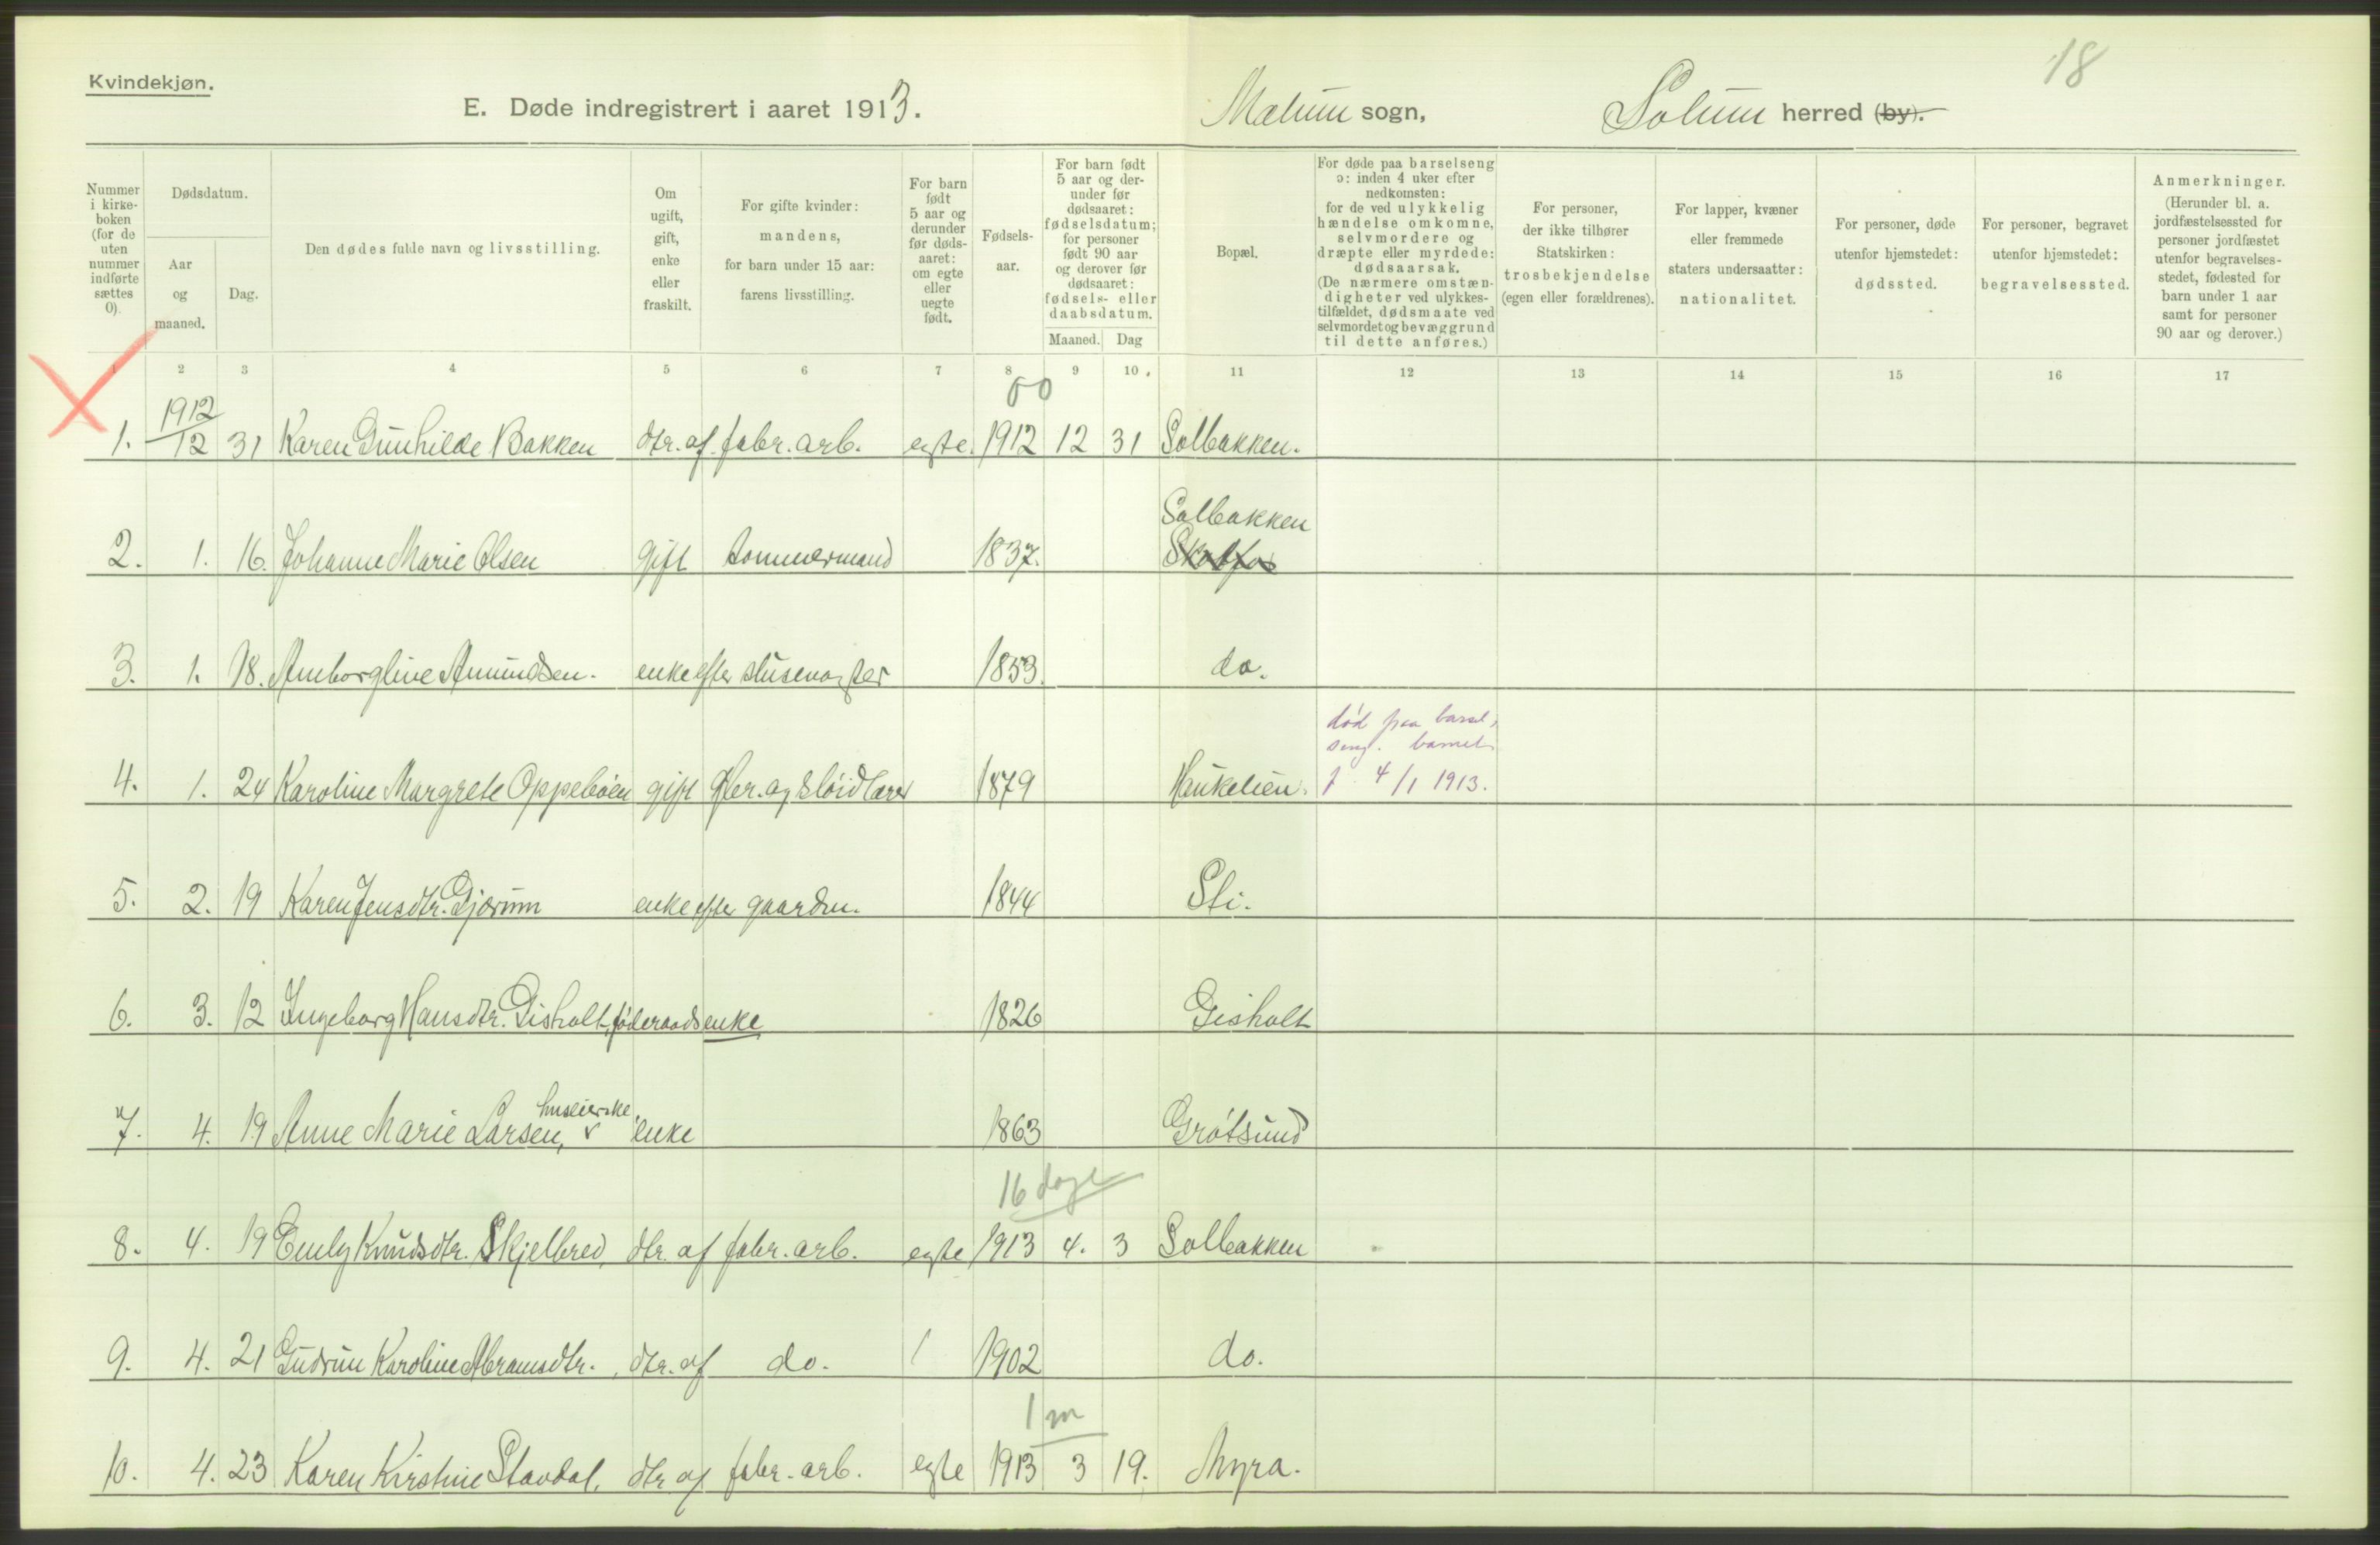 18
Kvindekjøn.
E. Døde indregistrert i aaret 1913. Mælum sogn, Solum herred (by).
Nummer i kirke-boken (for de uten nummer indførte sættes 0).
Dødsdatum.
Aar og maaned.
Dag.
Den dødes fulde navn og livsstilling.
Om ugift, gift, enke eller fraskilt.
For gifte kvinder: mandens, for barn under 15 aar: farens livsstilling.
For barn født 5 aar og derunder før døds-aaret: om egte eller uegte født.
Fødsels-aar.
For barn født 5 aar og der-under før dødsaaret: fødselsdatum; for personer født 90 aar og derover før dødsaaret: fødsels- eller daabsdatum.
Maaned. Dag
Bopæl.
For døde paa barselseng ɔ: inden 4 uker efter nedkomsten: for de ved ulykkelig hændelse omkomne, selvmordere og dræpte eller myrdede: dødsaarsak. (De nærmere omstæn-digheter ved ulykkes-tilfældet, dødsmaate ved selvmordet og bevæggrund til dette anføres.)
For personer, der ikke tilhører Statskirken: trosbekjendelse (egen eller forældrenes).
For lapper, kvæner eller fremmede staters undersaatter: nationalitet.
For personer, døde utenfor hjemstedet: dødssted.
For personer, begravet utenfor hjemstedet: begravelsessted.
Anmerkninger. (Herunder bl. a. jordfæstelsessted for personer jordfæstet utenfor begravelses-stedet, fødested for barn under 1 aar samt for personer 90 aar og derover.)
1 2 3 4 5 6 7 8 9 10 11 12 13 14 15 16 17
00
1. 1912/12 31 Karen Gunhilde Bakken dtr. af fabr. arb. egte. 1912 12 31 Solbakken.
Solbakken
2. 1. 16. Johanne Marie Olsen gift tømmermand 1837. Skotfos
3. 1. 18. Amborgline Amundsen. enke efter slusevogter 1853. do.
død paa barsel-
seng. barnet
4. 1. 24 Karoline Margrete Oppebøen gift og sløidlærer 1879 Haukelien. f. 4/1 1913.
5. 2. 19 Karen Jensdtr. Gjærum enke efter gaardm. 1844 Sti.
6. 3. 12 Ingeborg Hansdtr. Gisholt, føderaadsenke 1826 Gisholt
huseierske
7. 4. 19 Anne Marie Larsen, enke 1863 Grøtsund
16 dage
8. 4. 19 Emly Knudsdtr. Skjelbred, dtr. af fabr. arb. egte 1913 4. 3 Solbakken
9. 4. 21 Gudrun Karoline Abramsdtr. dtr. af do. 1902 do.
1 m
10. 4. 23 Karen Kirstine Stavdal. dtr af fabr. arb. egte 1913 3 19. Myra.